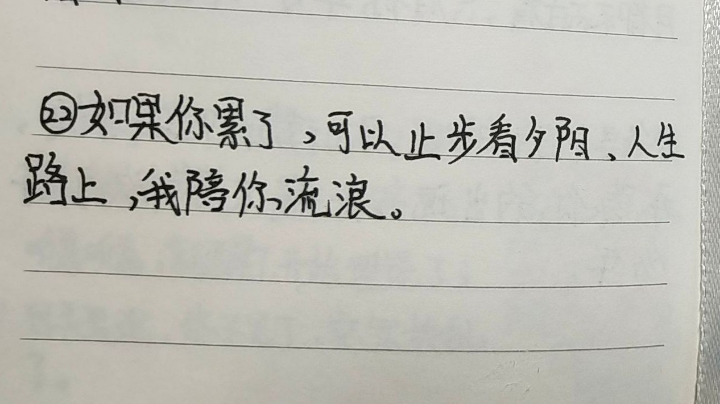 ㉒如果你累了,可以止步看夕阳、人生
路上,我陪你流浪。